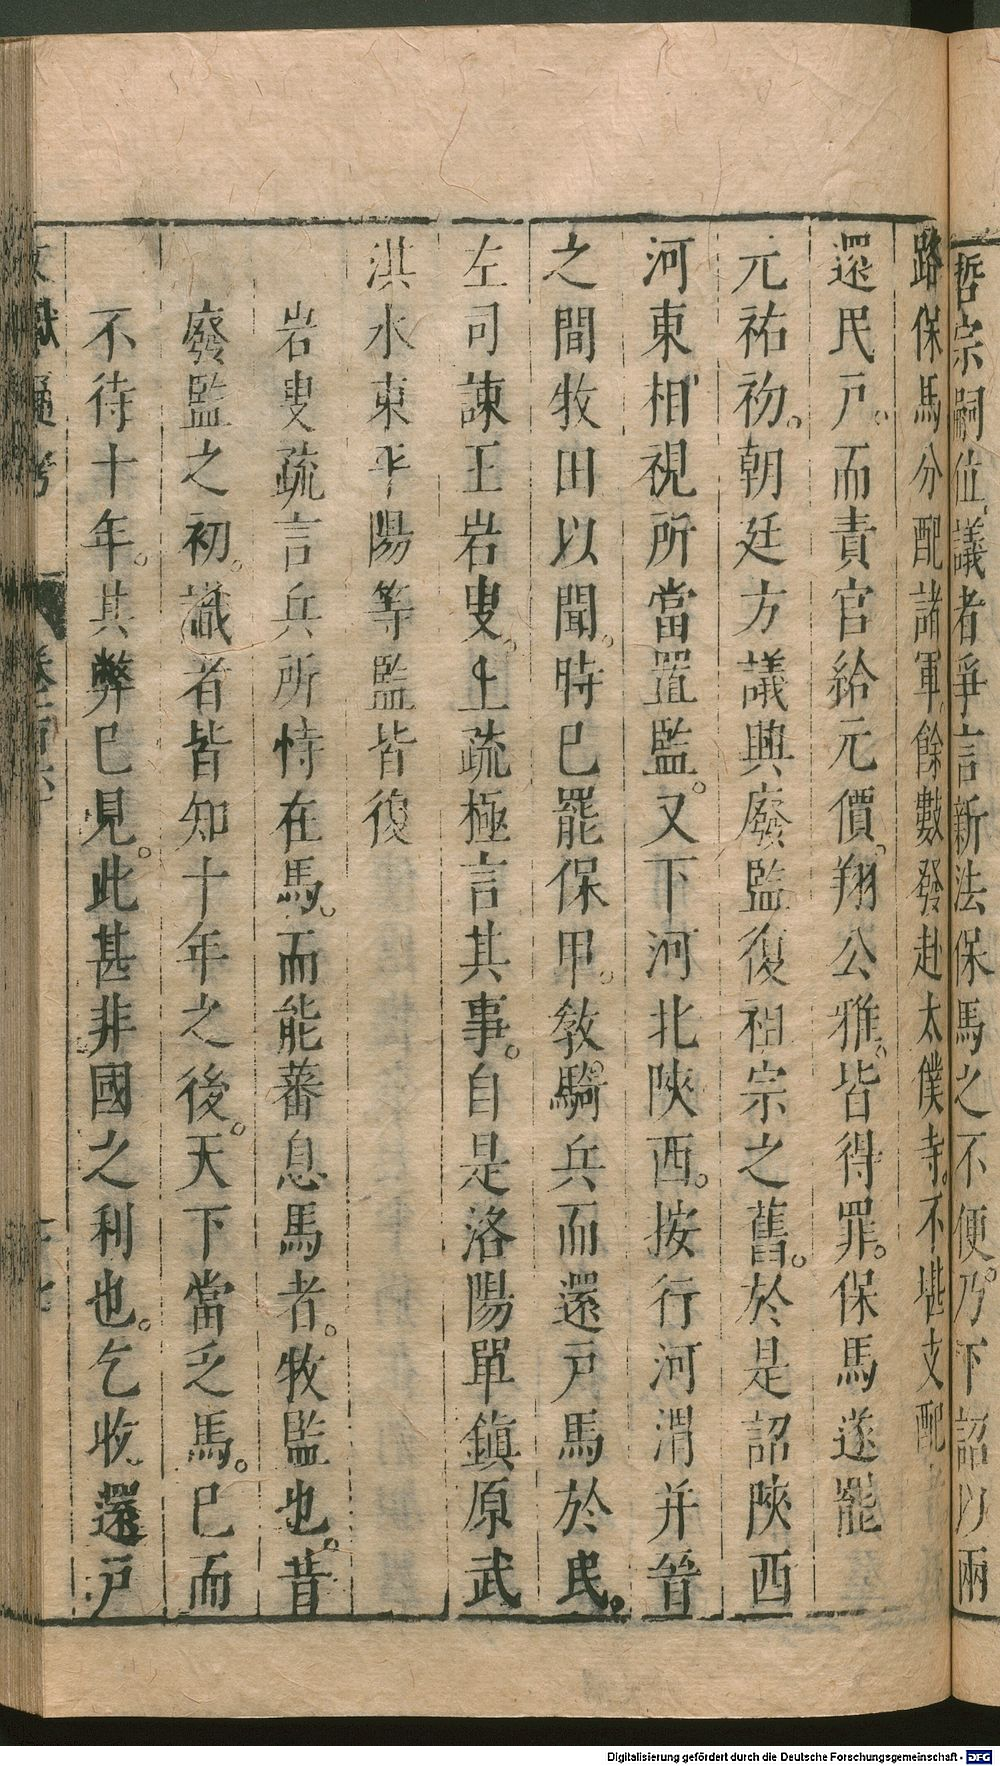 哲宗嗣位議者爭言新法保馬之不便乃下詔以兩
路保馬分配諸軍餘數發赴太僕寺不堪支配
還民戶而責官給元價翔公雅皆得罪保馬遂罷
元祐初朝廷方議興廢監復祖宗之舊於是詔陝西
河東相視所當置監又下河北陝西按行河渭并晉
之間牧田以聞時已罷保甲教騎兵而還戶馬於民
左司諫王岩叟上疏極言其事自是洛陽單鎮原武
淇水東平陽等監皆復
岩叟疏言兵所恃在馬而能蕃息馬者牧監也昔
廢監之初識者皆知十年之後天下當乏馬已而
不待十年其弊已見此甚非國之利也乞收還戶
文獻通考
Digitalisierung gefördert durch die Deutsche Forschungsgemeinschaft - DFG